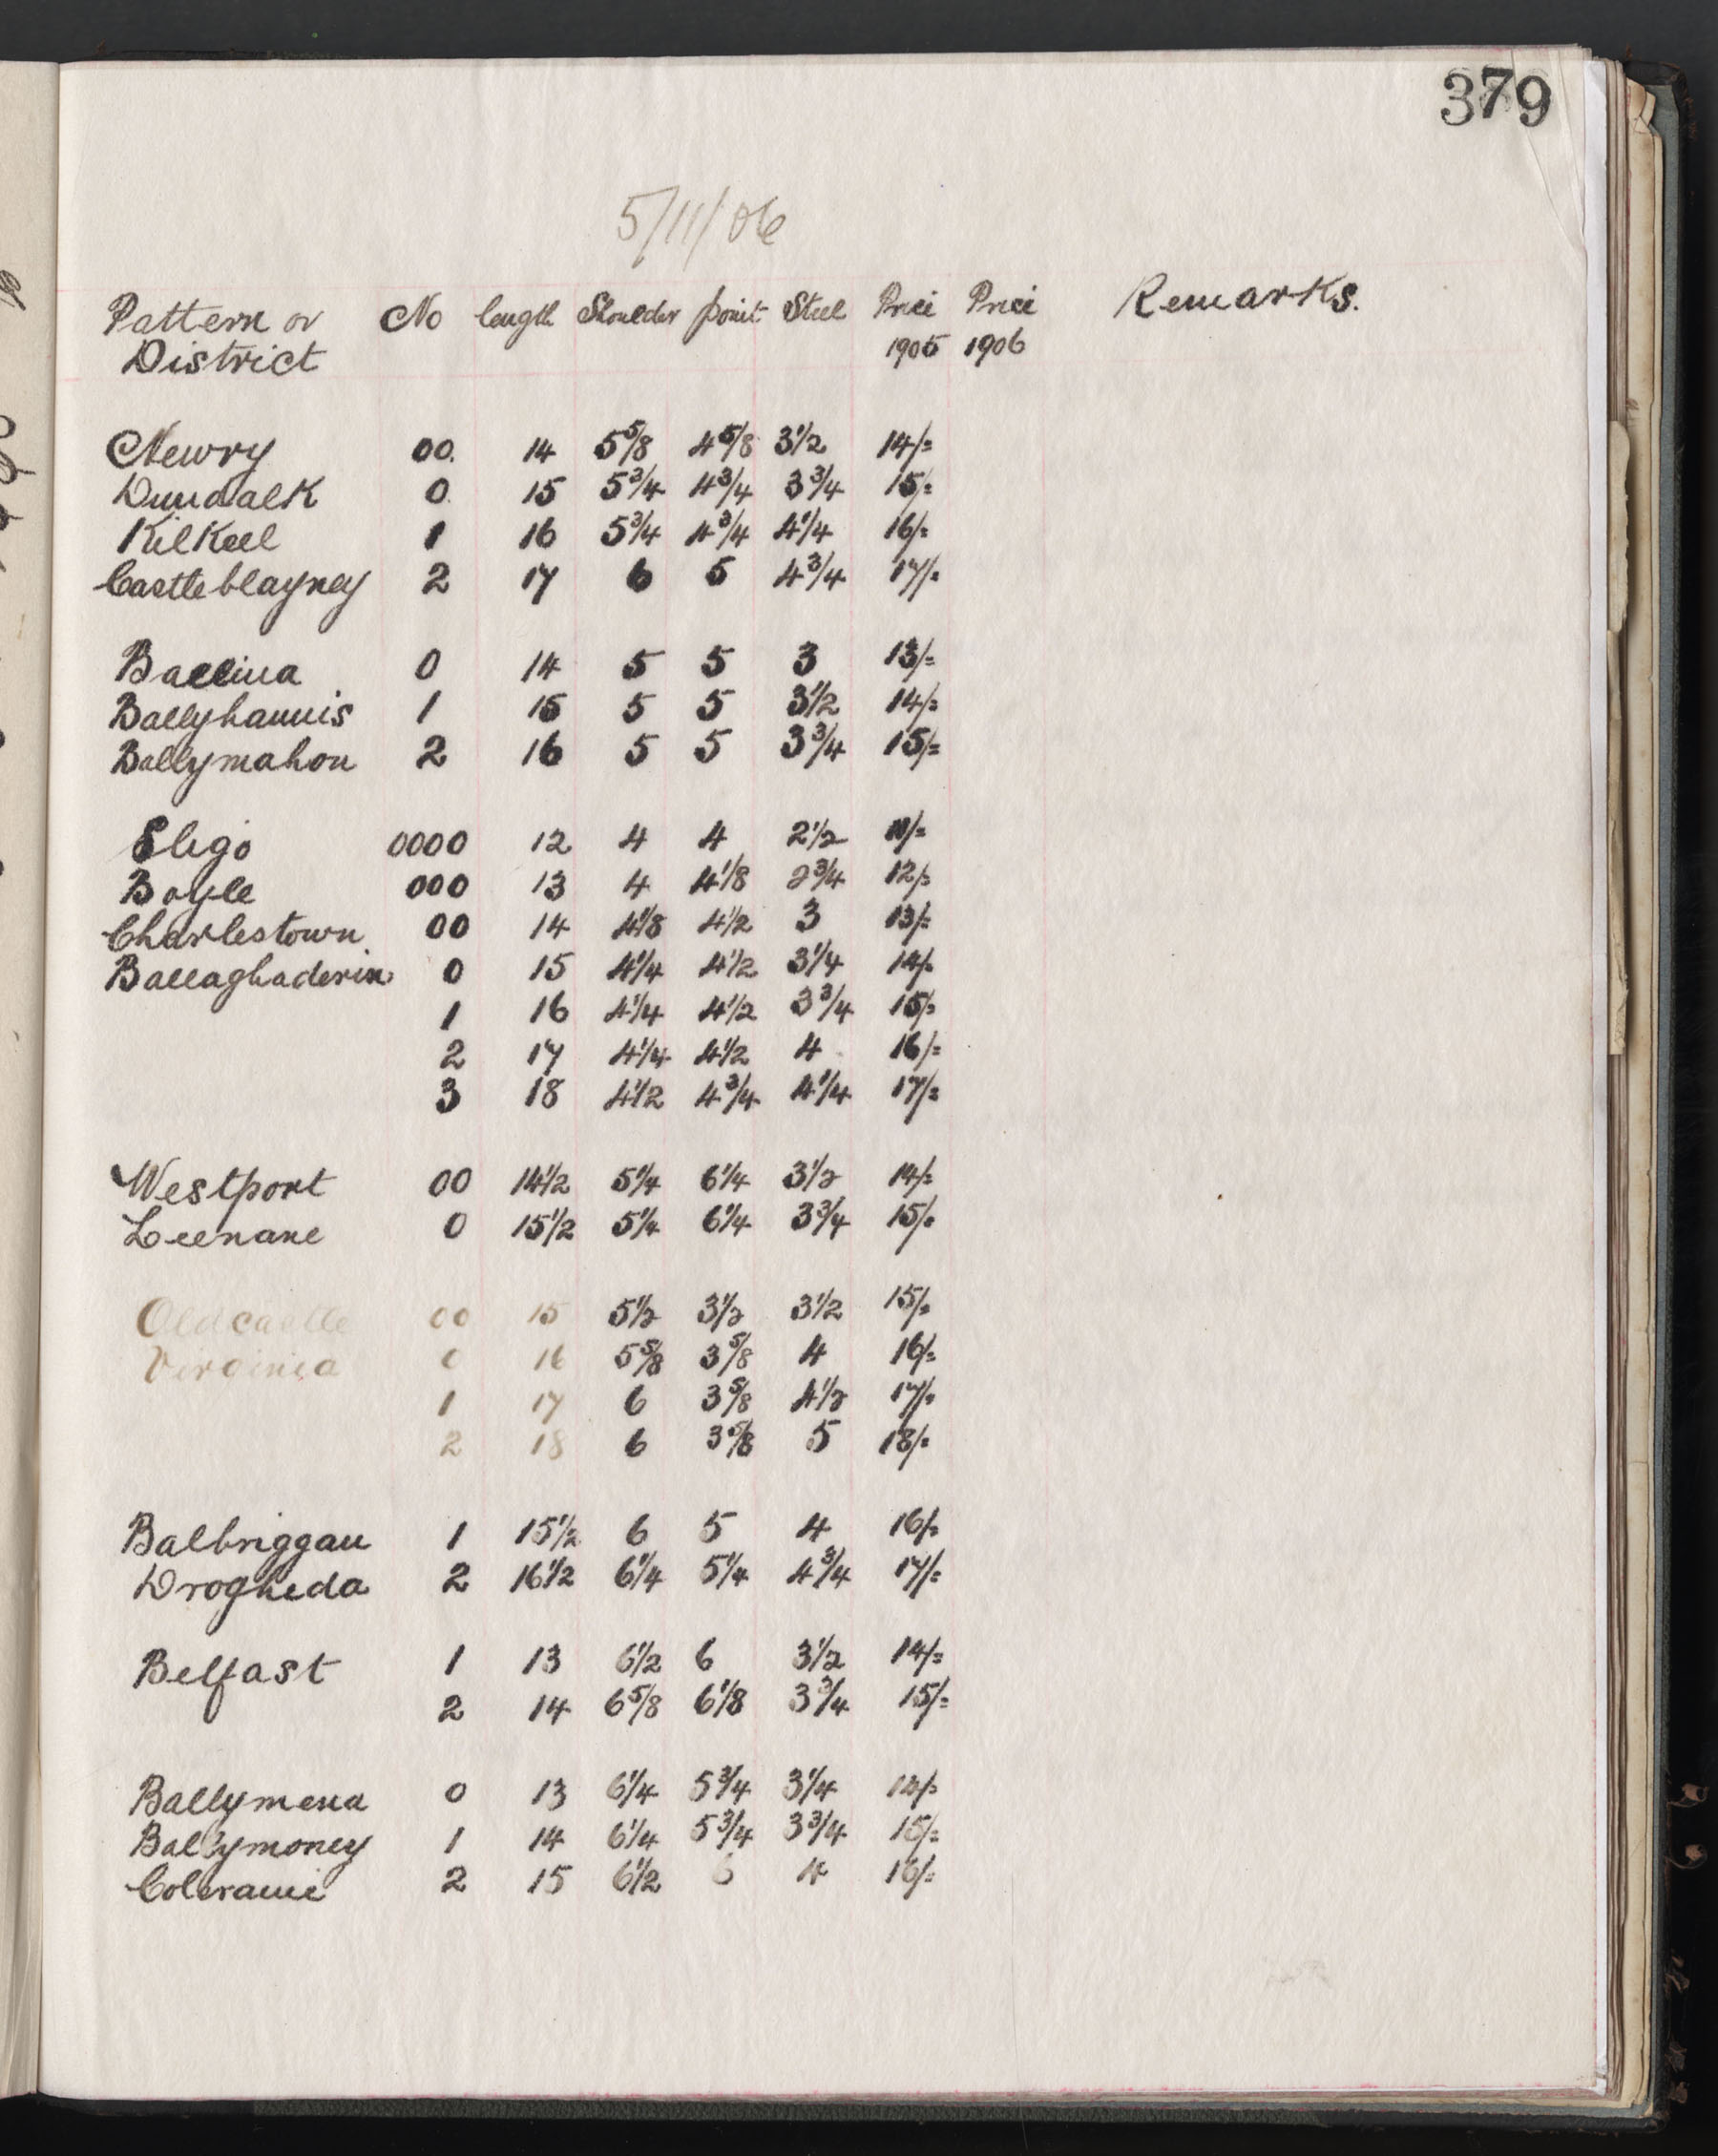 379
5/11/06
Pattern or No length Shoulder point Steel Price Price Remarks.
District 1905 1906
Newry 00. 14 5 5/8 4 5/8 3 1/2 14/=
Dundalk 0. 15 5 3/4 4 3/4 3 3/4 15/=
Kilkeel 1 16 5 3/4 4 3/4 4 1/4 16/=
Castleblayney 2 17 6 5 4 3/4 17/=
Ballina 0 14 5 5 3 13/=
Ballyhaunis 1 15 5 5 3 1/2 14/=
Ballymahon 2 16 5 5 3 3/4 15/=
Sligo 0000 12 4 4 2 1/2 11/=
Boyle 000 13 4 4 1/8 2 3/4 12/=
Charlestown 00 14 4 1/8 4 1/2 3 13/=
Ballaghaderin 0 15 4 1/4 4 1/2 3 1/4 14/=
1 16 4 1/4 4 1/2 3 3/4 15/=
2 17 4 1/4 4 1/2 4 16/=
3 18 4 1/2 4 3/4 4 1/4 17/=
Westport 00 14 1/2 5 1/4 6 1/4 3 1/2 14/=
Leenane 0 15 1/2 5 1/4 6 1/4 3 3/4 15/=
Oldcastle 00 15 5 1/2 3 1/2 3 1/2 15/=
Virginia 0 16 5 5/8 3 5/8 4 16/=
1 17 6 3 5/8 4 1/2 17/=
2 18 6 3 5/8 5 18/=
Balbriggan 1 15 1/2 6 5 4 16/=
Drogheda 2 16 1/2 6 1/4 5 1/4 4 3/4 17/=
Belfast 1 13 6 1/2 6 3 1/2 14/=
2 14 6 5/8 6 1/8 3 3/4 15/=
Ballymena 0 13 6 1/4 5 3/4 3 1/4 14/=
Ballymoney 1 14 6 1/4 5 3/4 3 3/4 15/=
Coleraine 2 15 6 1/2 6 4 16/=